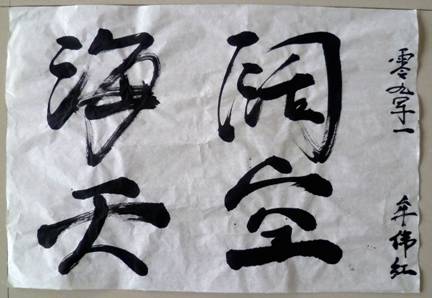 海阔
天空
零九年一
牟伟红